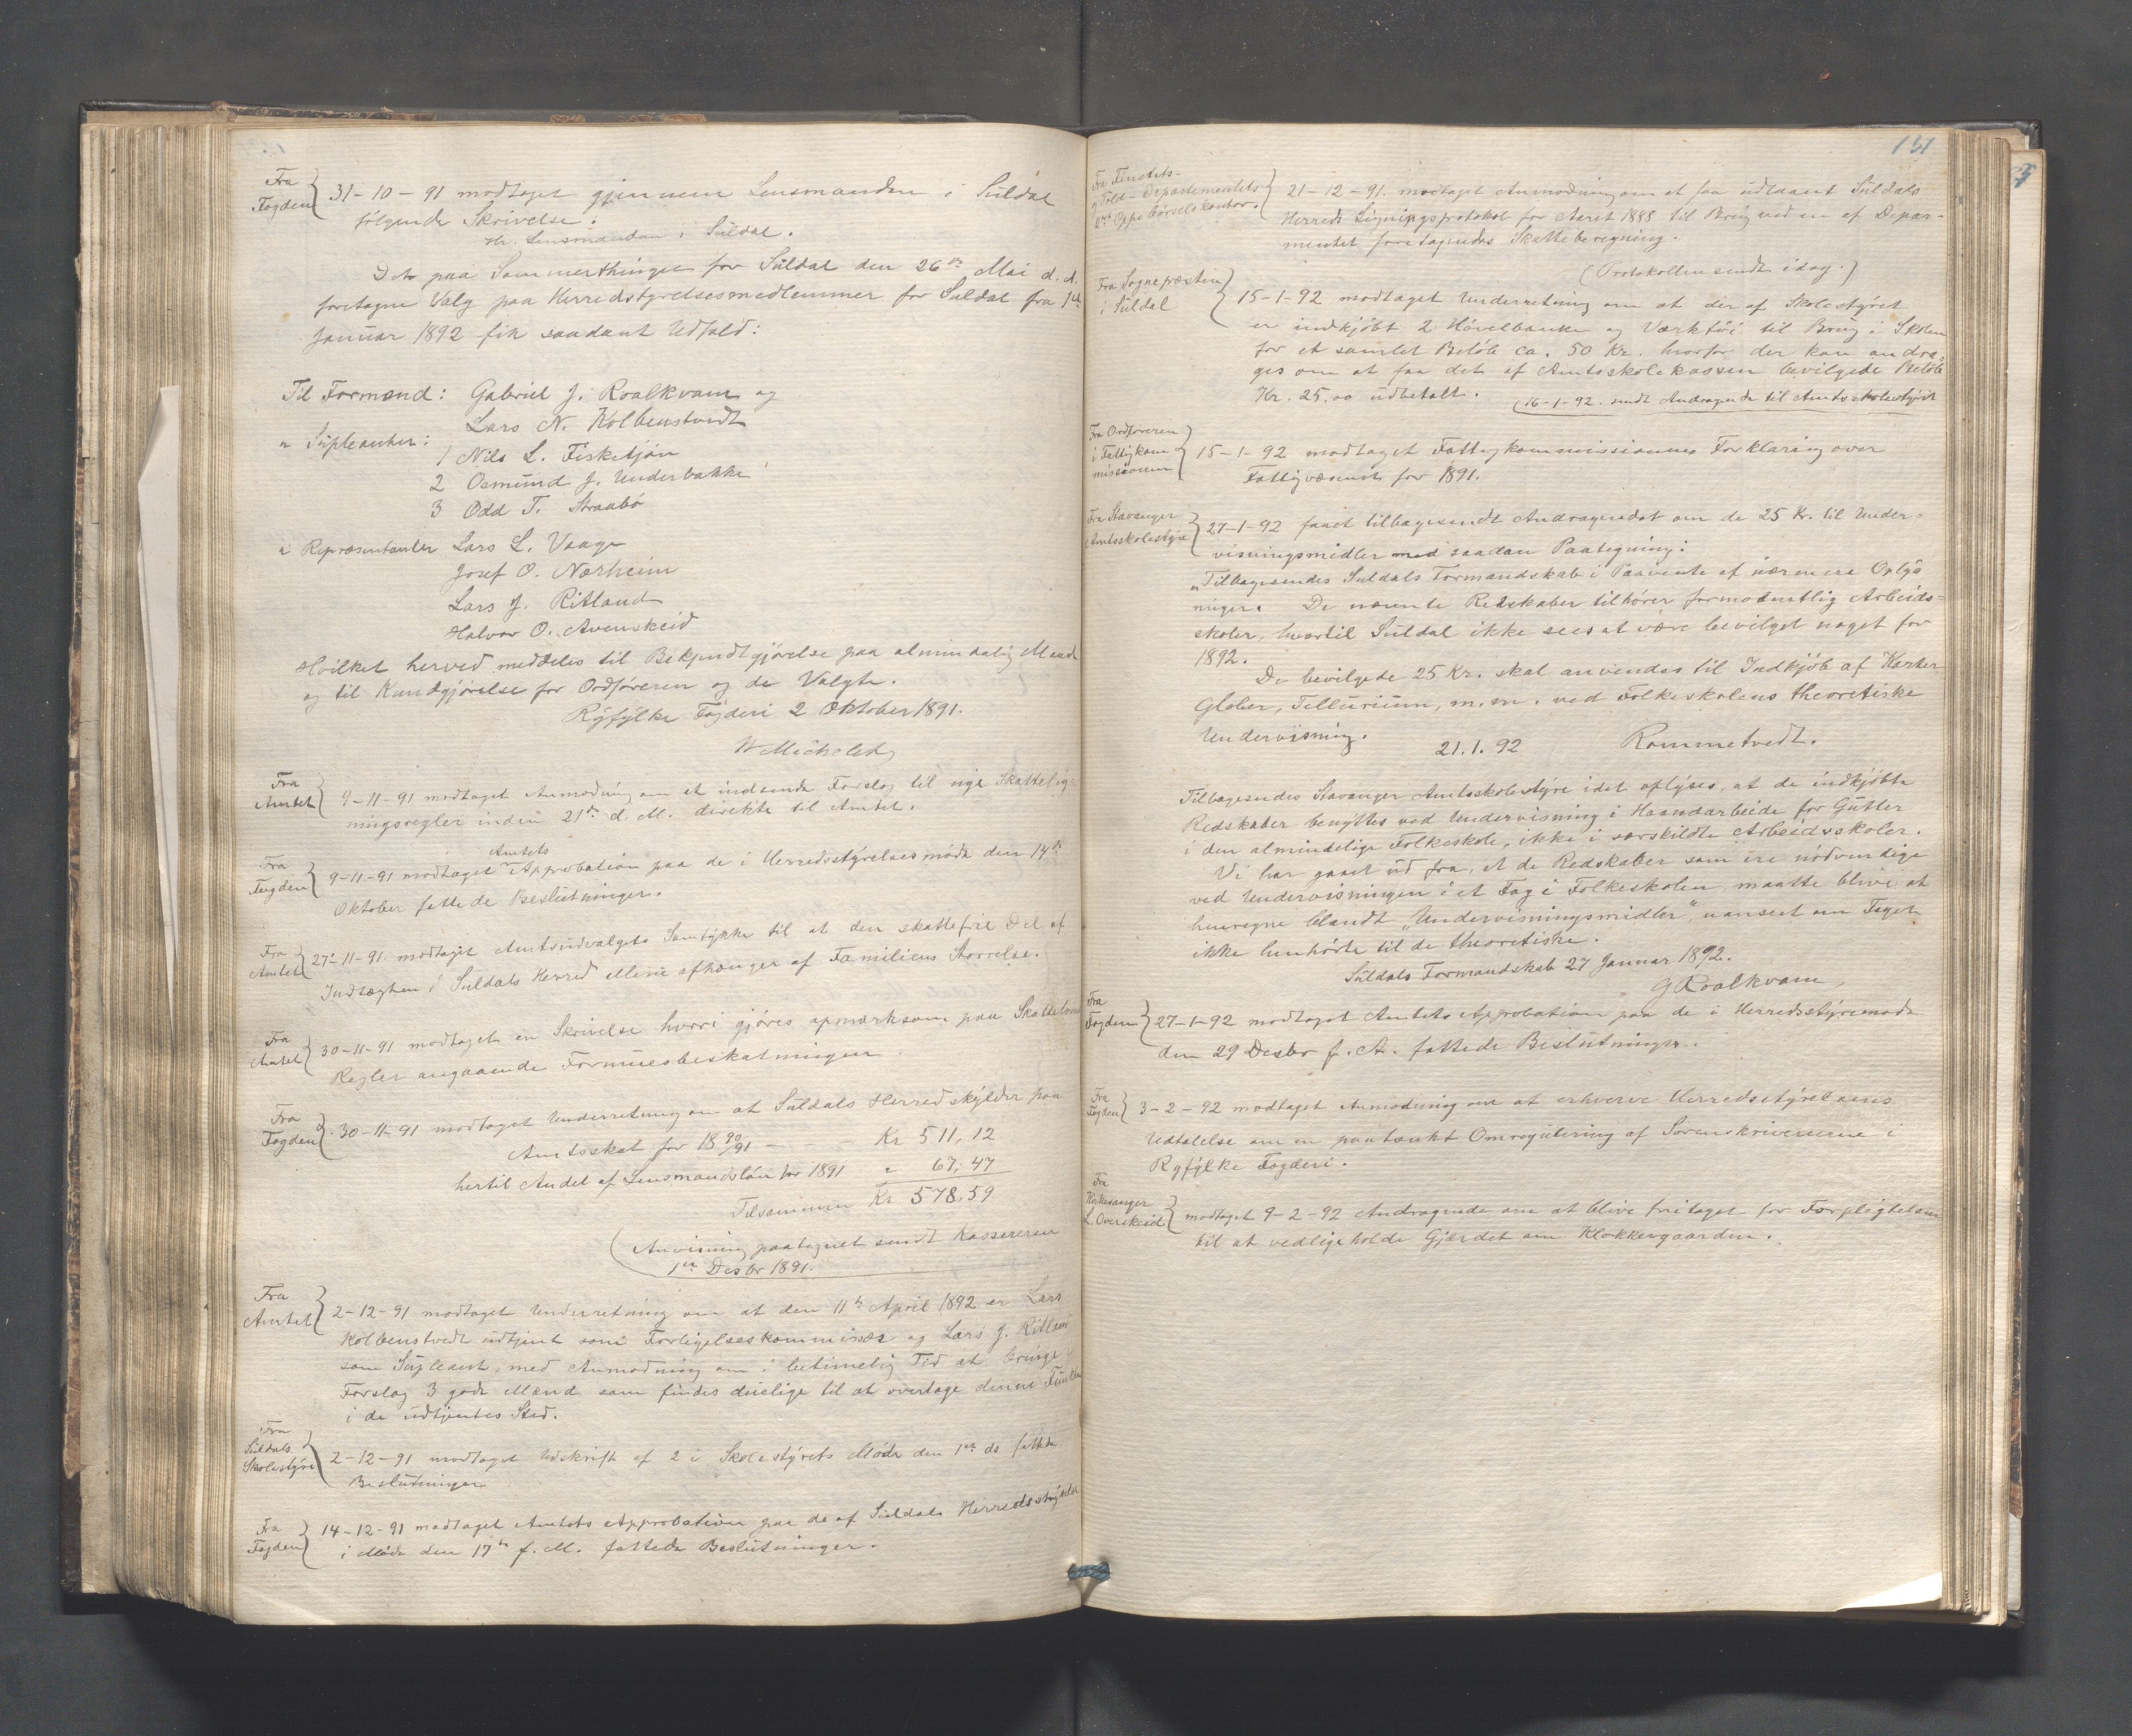 Fra
Fogden
31-10-91 modtaget gjennem Lensmanden i Suldal
følgende Skrivelse:
Hr. Lensmanden i Suldal.
Det paa Sommerthinget for Suldal den 26de Mai d. A.
foretagne Valg paa Herredstyrelsesmedlemmer for Suldal fra 1ste
Januar 1892 fik saadant Udfald:
Til Formænd: Gabriel J. Roalkvam og
Lars N. Kolbenstvedt
" Supleanter:
1 Nils L. Fisketjøn
2 Osmund J. Underbakke
3 Odd T. Straabø
" Repræsentanter Lars L. Vaage
Josef O. Nærheim
Lars J. Ritland
Halvor O. Avenskeid
Hvilket herved meddeles til Bekjendtgjørelse paa almindelig Maade
og til Kundgjørelse for Ordføreren og de Valgte.
Ryfylke Fogderi 2 Oktober 1891.
W Michelet
Fra
Amtet
9-11-91 modtaget Anmodning om at indsende Forslag til nye Skattelig-
ningsregler inden 21de d. M. direkte til Amtet.
Fra
Fogden
9-11-91 modtaget Amtets Approbation paa de i Herredsstyrelsesmøde den 14de
Oktober fattede Beslutninger.
Fra
Amtet
27-11-91 modtaget Amtsudvalgets Samtykke til at den skattefrie Del af
Indtægten i Suldals Herred ellene afhænger af Familiens Størrelse.
Fra
Amtet
30-11-91 modtaget en Skrivelse hvori gjøres opmærksom paa Skattelovens
Regler angaaende Formuesbeskatningen.
Fra
Fogden
30-11-91 modtaget Underretning om at Suldals Herred skylder paa
Amtsskat for 1890/91 — Kr 511,12
hertil Andel af Lensmandsløn for 1891 " 67,47
Tilsammen Kr 578,59
(Anvisning paategnet sendt Kassereren
1ste Desbr 1891.
Fra
Amtet
2-12-91 modtaget Underretning om at den 11te April 1892 er Lars
Kolbenstvedt udtjent som Forligelseskommissær og Lars J. Ritland
som Supleant, med Anmodning om i betimelig Tid at bringe i
Forslag 3 gode Mænd som findes duelige til at overtage denne Funktion
i de udtjentes Sted.
Fra
Suldals
Skolestyre
2-12-91 modtaget Udskrift af 2 i Skolestyrets Møde den 1ste ds fattede
Beslutninger
Fra
Fogden
14-12-91 modtaget Amtets Approbation paa de af Suldals Herredsstyrelse
i Møde den 17de f. M. fattede Beslutninger.
131
Fra Finants-
og Told-Departementets
2det Oppebørselskontor.
21-12-91. modtaget Anmodning om at faa udlaant Suldals
Herreds Ligningsprotokol for Aaret 1888 til Brug ved en af Depar-
mentet foretagendes Skatteberegning.
(Protokollen sendt idag.)
Fra Sognepresten
i Suldal
15-1-92 modtaget Underretning om at der af Skolestyret
er indkjøbt 2 Høvelbænke og Værktøi til Brug i Skolen
for et samlet Beløb ca. 50 Kr. hvorfor der kan andra-
ges om at faa det af Amtsskolekassen bevilgede Beløb
Kr. 25,00 udbetalt.
(16-1-92. sendt Andragende til Amtsskolestyret
Fra Ordføreren
i Fattigkom
missionen
15-1-92 modtaget Fattigkommissionens Forklaring over
Fattigvæsenet for 1891.
Fra Stavanger
Amtsskolestyre
27-1-92 faaet tilbagesendt Andragendet om de 25 Kr. til Under-
visningsmidler med saadan Paategning:
"Tilbagesendes Suldals Formandskab i Paavente af nærmere Oplys
ninger. De nævnte Redskaber tilhører formodentlig Arbeids-
skoler, hvortil Suldal ikke sees at være bevilget noget for
1892.
De bevilgede 25 Kr. skal anvendes til Indkjøb af Karter
Glober, Tellurium, m. m. ved Folkeskolens theoretiske
Undervisning.
21.1.92 Rommetvedt.
Tilbagesendes Stavanger Amtsskolestyre idet oplyses, at de indkjøbte
Redskaber benyttes ved Undervisning i Haandarbeide for Gutter
i den almindelige Folkeskole, ikke i særskildte Arbeidsskoler.
Vi har gaaet ud fra, at de Redskaber som ere nødvendige
ved Undervisningen i et Fag i Folkeskolen, maatte blive at
henregne blandt "Undervisningsmidler", uanseet om Faget
ikke henhørte til de theoretiske.
Suldals Formandskab 27 Januar 1892.
G Roalkvam
Fra
Fogden
27-1-92 modtaget Amtets Approbation paa de i Herredsstyremøde
den 29 Desbr f. A. fattede Beslutninger.
Fra
Fogden
3-2-92 modtaget Anmodning om at erhverve Herredsstyrelsens
Udtalelse om en paatænkt Omregulering af Sorenskriverierne i
Ryfylke Fogderi.
Fra
Kirkesanger
L. Overskeid
modtaget 9-2-92 Andragende om at blive fritaget for Forpligtelsen
til at vedligeholde Gjærdet om Klokkergaarden.